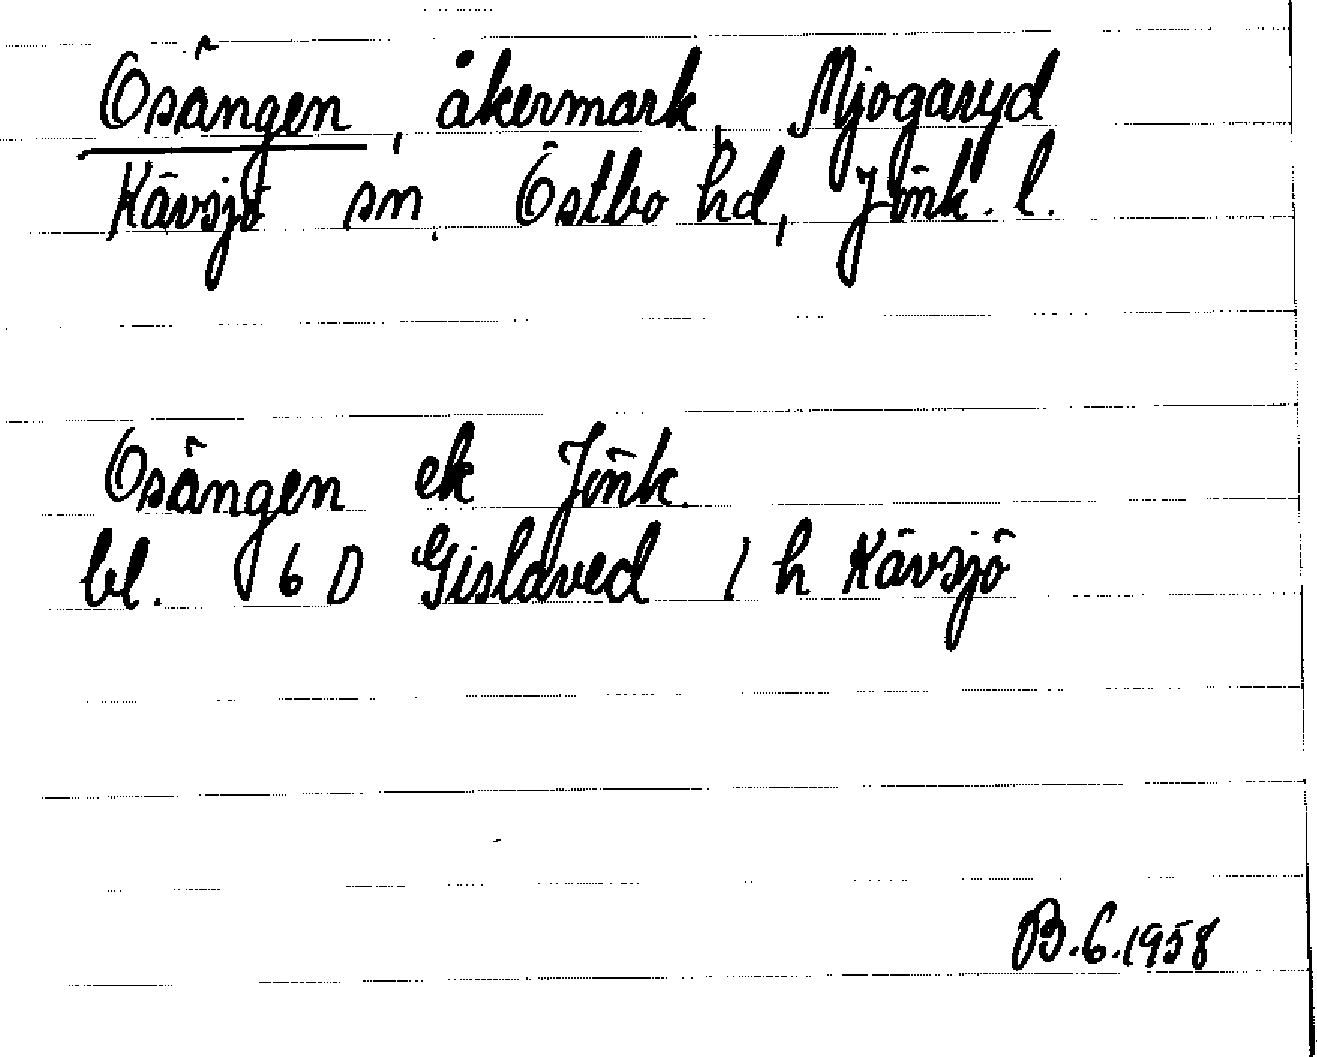 Osängen, åkermark, Mjogaryd
Kävsjö sn. Östbo hd, Jönk. l.
Osängen ek Jönk.
bl. 6 D Gislaved 1 h Kävsjö
B.G.1958